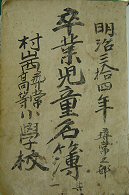 明治三拾四年 尋常之部
卒業児童名簿
村山西尋常高等小學校